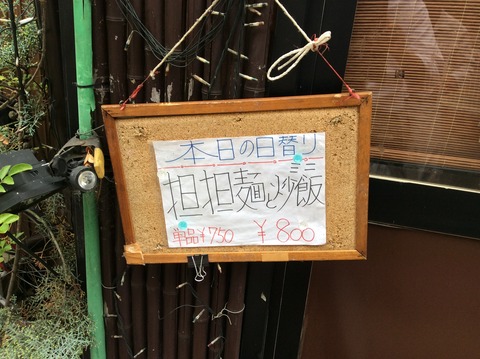 本日の日替り
担担麺とミニ炒飯
単品¥750 ¥800